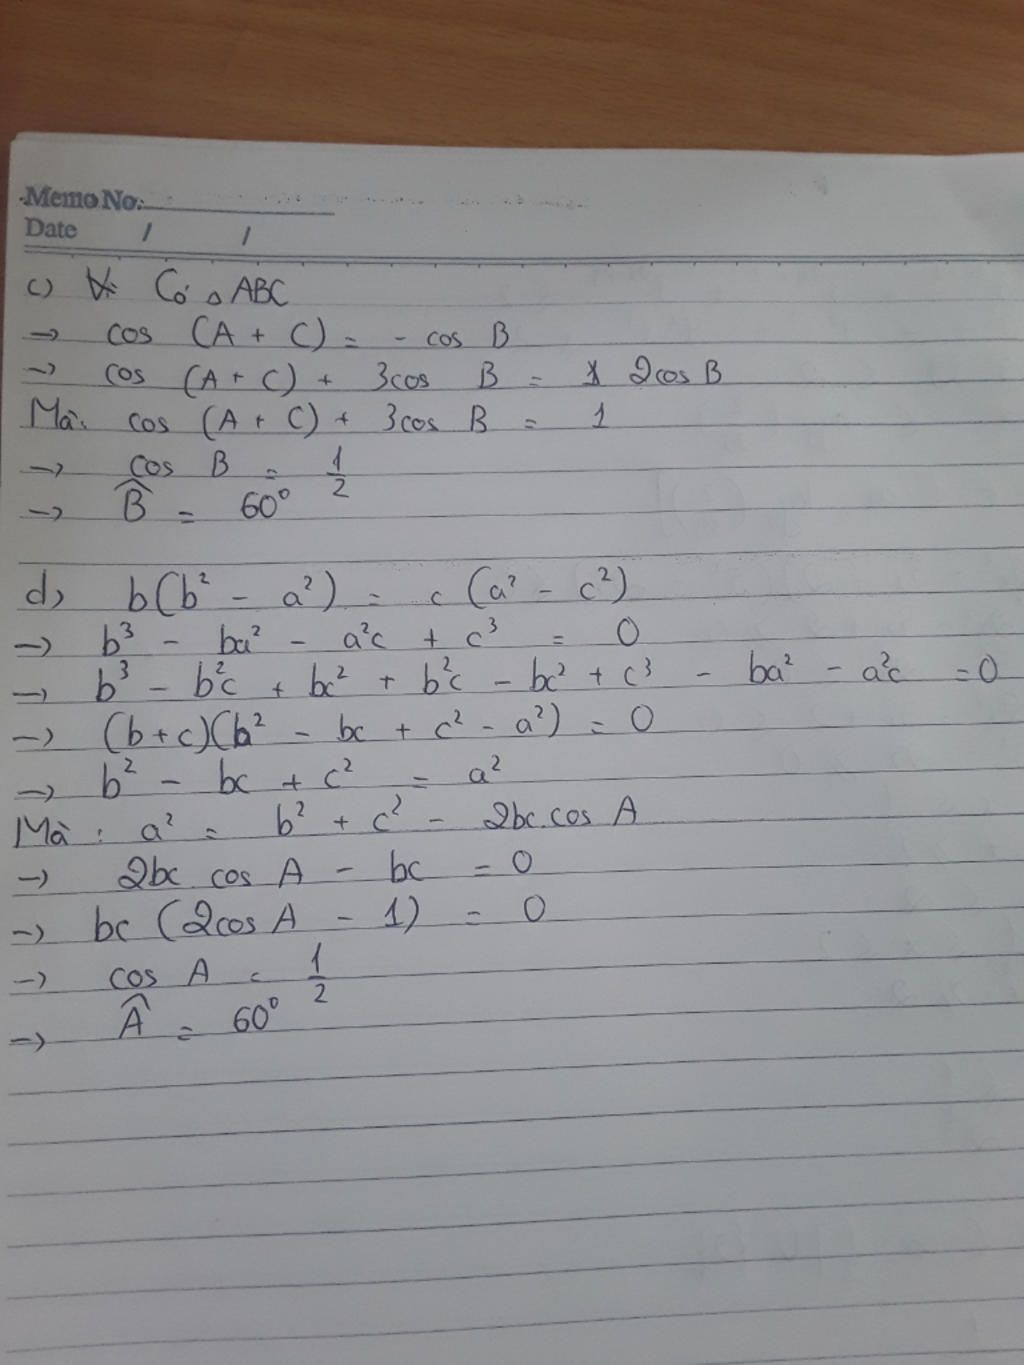 Memo No.
Date / /
c) Có △ABC
→ cos (A + C) = - cos B
→ cos (A + C) + 3cos B = 2cos B
Mà: cos (A + C) + 3cos B = 1
→ cos B = 1/2
→ B̂ = 60°
d) b(b² - a²) = c (a² - c²)
→ b³ - ba² - a²c + c³ = 0
→ b³ - b²c + bc² + b²c - bc² + c³ - ba² - a²c = 0
→ (b+c)(b² - bc + c² - a²) = 0
→ b² - bc + c² = a²
Mà : a² = b² + c² - 2bc.cos A
→ 2bc cos A - bc = 0
→ bc (2cos A - 1) = 0
→ cos A = 1/2
→ Â = 60°